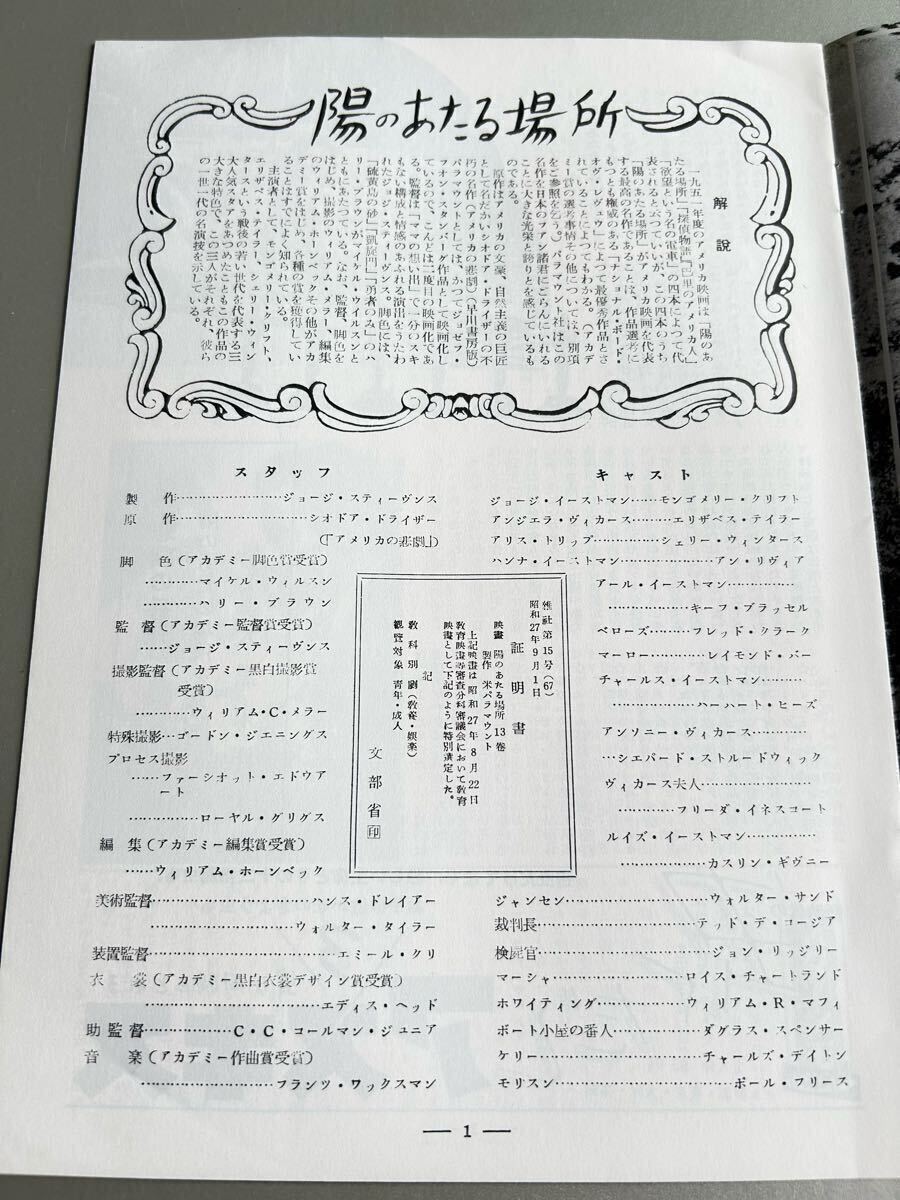 陽のあたる場所
解説
一九五一年度のアメリカ映画は「陽のあ
たる場所」「探偵物語」「巴里のアメリカ人」
「欲望という名の電車」の四本によって代
表されると云っていいが、この四本のうち
「陽のあたる場所」がアメリカ映画を代表
する最高の名作であることは、作品選考に
もっとも権威のある「ナショナル・ボード・
オヴ・レヴュウ」によって最優秀作品とさ
れていることによってもわかる。（アカデ
ミー賞の選考事情その他については、別項
をご参照を乞う。）パラマウント社はこの
名作を日本のフアン諸君におくらんいれる
ことに大きな光栄と誇りとを感じているも
のである。
原作はアメリカの文豪、自然主義の巨匠
として名だかいシオドア・ドライザーの不
朽の名作「アメリカの悲劇」（早川書房版）
パラマウントとしては、かつてジョゼフ・
フオン・スタンバーグ作品として映画化し
ているので、こんどは二度目の映画化であ
る。監督は「ママの想い出」で一分のスキ
もない構成と情感あふれる演出をうたわ
れたジョージ・スティーヴンス。脚色には、
「硫黄島の砂」「凱旋門」「勇者のみ」のハ
リー・ブラウンがマイケル・ウイルスンと
ともにあたつている。なお、監督、脚色を
はじめ、撮影のウィリアム・メラー、編集
のウィリアム・ホーンベックその他がアカ
デミー賞をはじめ、各種の賞を獲得してい
ることはすでによく知られている。
主演者として、モンゴメリー・クリフト、
エリザベス・テイラー、シェリー・ウィン
タースという戦後の若い世代を代表する三
大人気スタアをあつめたこともこの作品の
大きな特色で、この三人がそれぞれ、彼ら
の一世一代の名演技を示している。
スタッフ
製作……………………ジョージ・スティーヴンス
原作……………………シオドア・ドライザー
（「アメリカの悲劇」）
脚色（アカデミー脚色賞受賞）
…………マイケル・ウィルスン
…………ハリー・ブラウン
監督（アカデミー監督賞受賞）
………ジョージ・スティーヴンス
撮影監督（アカデミー黒白撮影賞
受賞）
…………ウィリアム・C・メラー
特殊撮影…ゴードン・ジエニングス
プロセス撮影
……ファーシオット・エドウア
ート
…………ローヤル・グリグス
編集（アカデミー編集賞受賞）
……ウィリアム・ホーンベック
美術監督……………………ハンス・ドレイアー
……………………ウォルター・タイラー
装置監督……………………エミール・クリ
衣裳（アカデミー黒白衣裳デザイン賞受賞）
……………………エディス・ヘッド
助監督……………C・C・コールマン・ジュニア
音楽（アカデミー作曲賞受賞）
………………フランツ・ワックスマン
キャスト
ジョージ・イーストマン……モンゴメリー・クリフト
アンジェラ・ヴィカース……エリザベス・テイラー
アリス・トリップ…………シェリー・ウィンタース
ハンナ・イーストマン……………アン・リヴィア
アール・イーストマン…………
…………キーフ・ブラッセル
ベローズ……フレッド・クラーク
マーロー……レイモンド・バー
チャールス・イーストマン………
…………ハーハート・ヒーズ
アンソニー・ヴィカース…………
…シエパード・ストルードウィック
ヴィカース夫人………………
………フリーダ・イネスコート
ルイズ・イーストマン…………
…………カスリン・ギヴニー
ジャンセン……………………ウォルター・サンド
裁判長…………………テッド・デ・コージア
検屍官……………………ジョン・リッジリー
マーシャ………………ロイス・チャートランド
ホワイティング…………ウィリアム・R・マフィ
ボート小屋の番人…………ダグラス・スペンサー
ケリー……………………チャールズ・デイトン
モリスン……………………ポール・フリース
雑社第15号(67)
昭和27年9月1日
証明書
映畫 陽のあたる場所 13巻
製作 米パラマウント
上記映畫は昭和27年8月22日
教育映畫等審査分科審議会において教育
映畫として下記のように特別選定した。
記
教科別 劇（教養・娯楽）
観覧対象 青年・成人
文部省 印
— 1 —